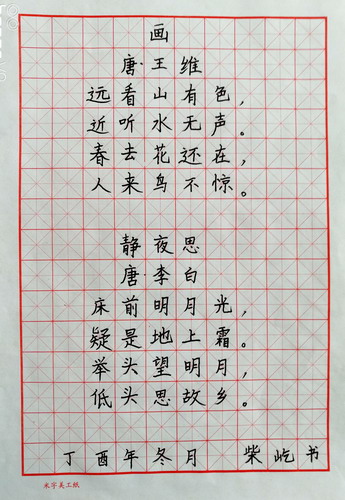 画
唐·王维
远看山有色，
近听水无声。
春去花还在，
人来鸟不惊。
静夜思
唐·李白
床前明月光，
疑是地上霜。
举头望明月，
低头思故乡。
丁酉年冬月 柴屹书
米字美工纸